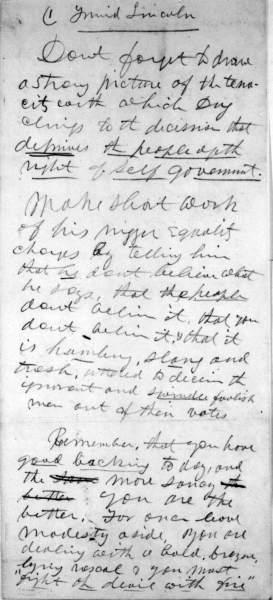 ( Friend Lincoln
Dont forget to draw
a strong picture of the tena-
city with which Dug
clings to the decission that
deprives the people of the
right of self government.
Make short work
of his nigger equality
charges by telling him
that he dont believe what
he says, that the people
dont believe it, that you
dont believe it, & that it
is humbug, slang and
trash, used to deceive the
ignorant and swindle foolish
men out of their votes
Remember, that you have
good backing to day, and
the more saucy
better you are the
better. For once leave
modesty aside, you are
dealing with a bold, brazen,
lying rascal & you must
"fight the devil with fire"